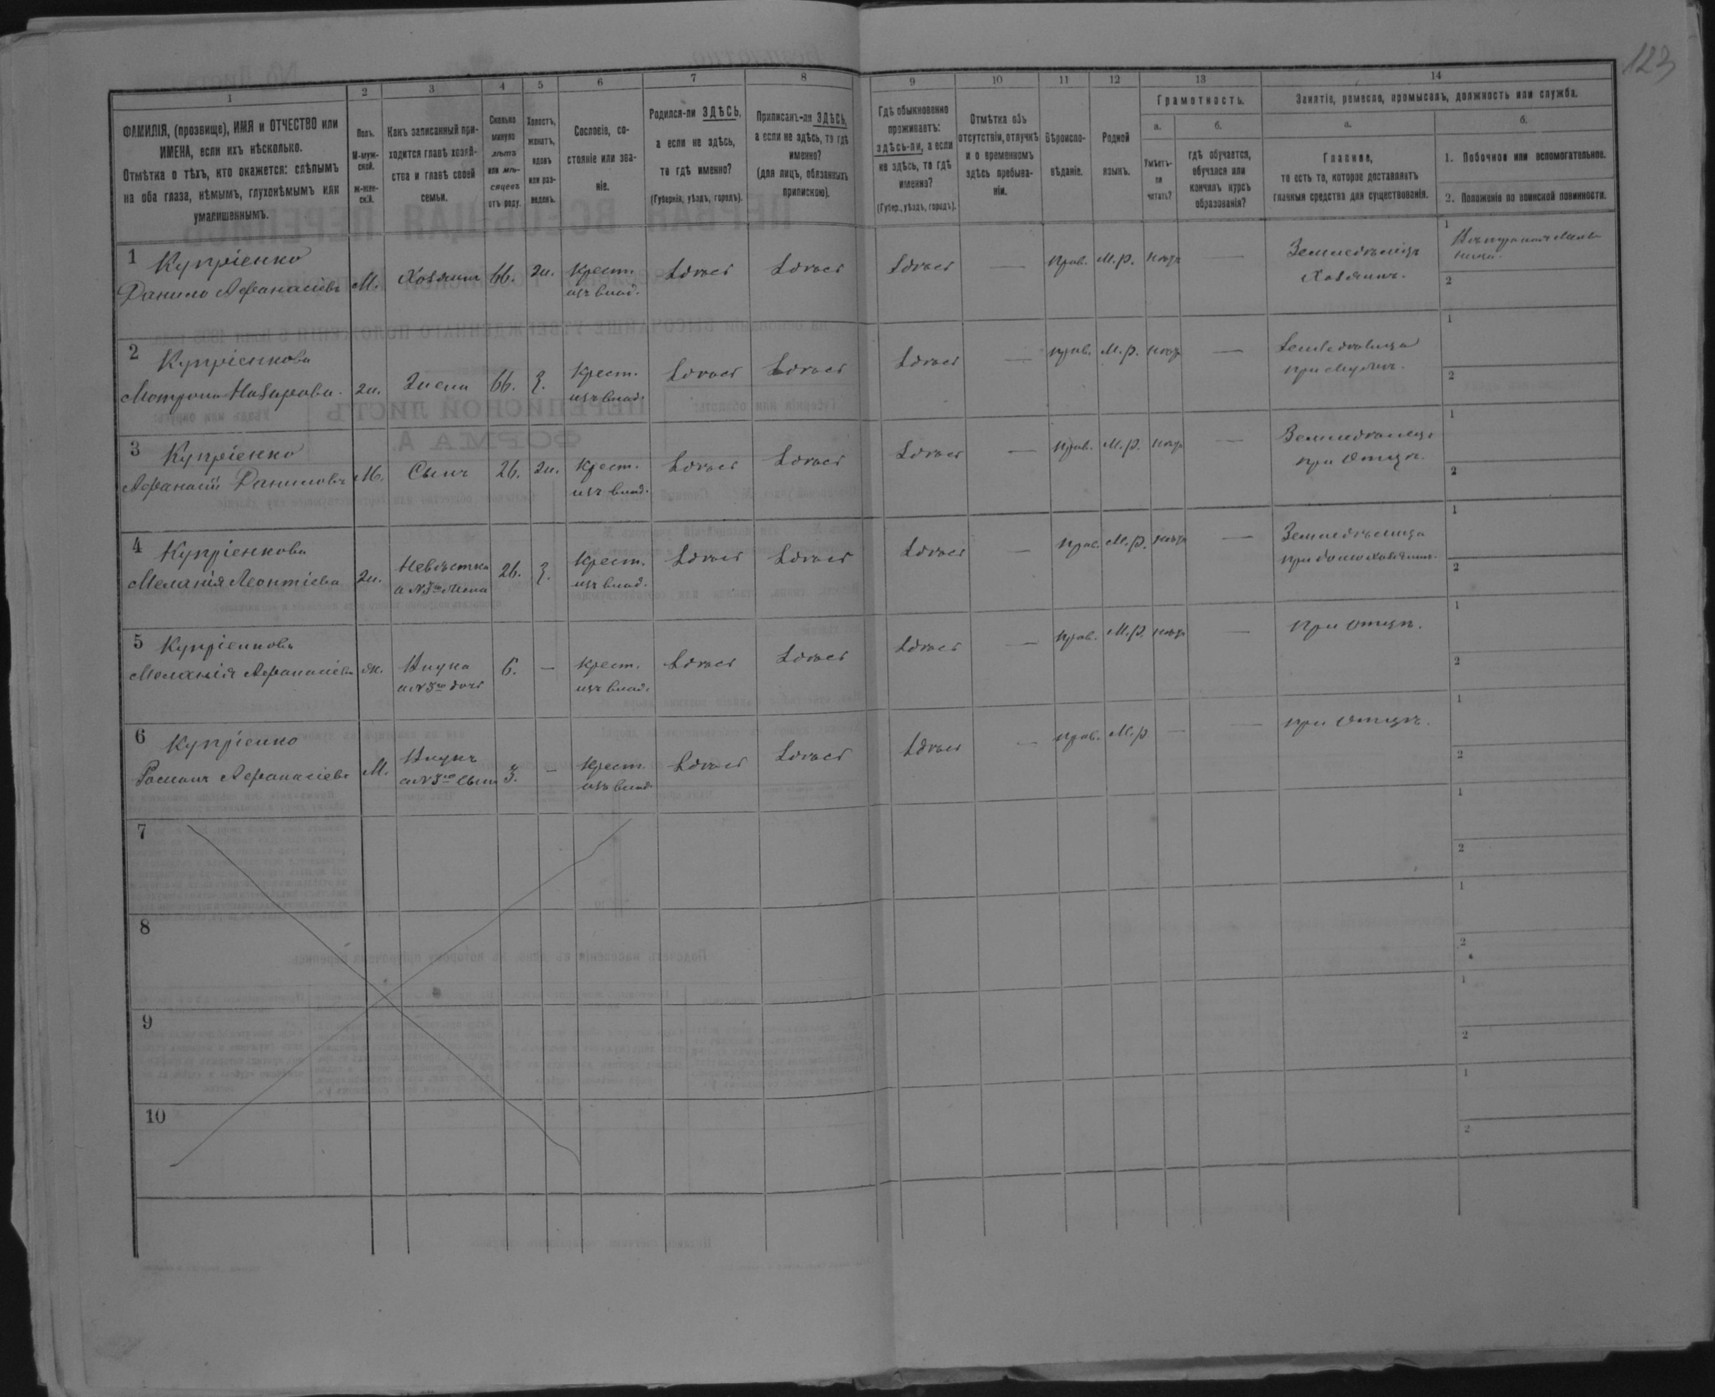 123
1 2 3 4 5 6 7 8 9 10 11 12 13 14
ФАМИЛІЯ, (прозвище), ИМЯ и ОТЧЕСТВО или
ИМЕНА, если ихъ нѣсколько.
Отмѣтка о тѣхъ, кто окажется: слѣпымъ
на оба глаза, нѣмымъ, глухонѣмымъ или
умалишеннымъ.
Полъ.
М-муж-
ской.
ж-жен-
скій.
Какъ записанный при-
ходится главѣ хозяй-
ства и главѣ своей
семьи.
Сколько
минуло
лѣтъ
или мѣ-
сяцевъ
отъ роду.
Холостъ,
женатъ,
вдовъ
или раз-
веденъ.
Сословіе, со-
стояніе или зва-
ніе.
Родился-ли ЗДѢСЬ,
а если не здѣсь,
то гдѣ именно?
(Губернія, уѣздъ, городъ).
Приписанъ-ли ЗДѢСЬ,
а если не здѣсь, то гдѣ
именно?
(для лицъ, обязанныхъ
припискою).
Гдѣ обыкновенно
проживаетъ:
здѣсь-ли, а если
не здѣсь, то гдѣ
именно?
(Губер., уѣздъ, городъ).
Отмѣтка объ
отсутствіи, отлучкѣ
и о временномъ
здѣсь пребыва-
ніи.
Вѣроиспо-
вѣданіе.
Родной
языкъ.
Грамотность.
а.
Умѣетъ-
ли
читать?
б.
гдѣ обучается,
обучался или
кончилъ курсъ
образованія?
Занятіе, ремесло, промыселъ, должность или служба.
а.
Главное,
то есть то, которое доставляетъ
главныя средства для существованія.
б.
1. Побочное или вспомогательное.
2. Положеніе по воинской повинности.
1 Купріенко
Данило Афанасіевъ М. Хозяинъ 66. ж. Крест. изъ влад. Здѣсь Здѣсь Здѣсь — Прав. М.р. нѣтъ — Земледѣлецъ
Хозяинъ.
1
2
2 Купріенкова
Мотрона Назарова ж. Жена 66. З. Крест. изъ влад. Здѣсь Здѣсь Здѣсь — Прав. М.р. нѣтъ — Земледѣлица
при мужѣ.
1
2
3 Купріенко
Афанасій Даниловъ М. Сынъ 26. ж. Крест. изъ влад. Здѣсь Здѣсь Здѣсь — Прав. М.р. нѣтъ — Земледѣлецъ
при Отцѣ.
1
2
4 Купріенкова
Меланія Леонтіева ж. Невѣстка
а №3го Жена 26. З. Крест. изъ влад. Здѣсь Здѣсь Здѣсь — Прав. М.р. нѣтъ — Земледѣлица
1
2
5 Купріенкова
Меланія Афанасіева ж. Внука
а №3го дочь 6. — Крест. изъ влад. Здѣсь Здѣсь Здѣсь — Прав. М.р. нѣтъ — При Отцѣ.
1
2
6 Купріенко
Романъ Афанасіевъ М. Внукъ
а №3го Сынъ 3. — Крест. изъ влад. Здѣсь Здѣсь Здѣсь — Прав. М.р. — — При Отцѣ.
1
2
7
1
2
8
1
2
9
1
2
10
1
2